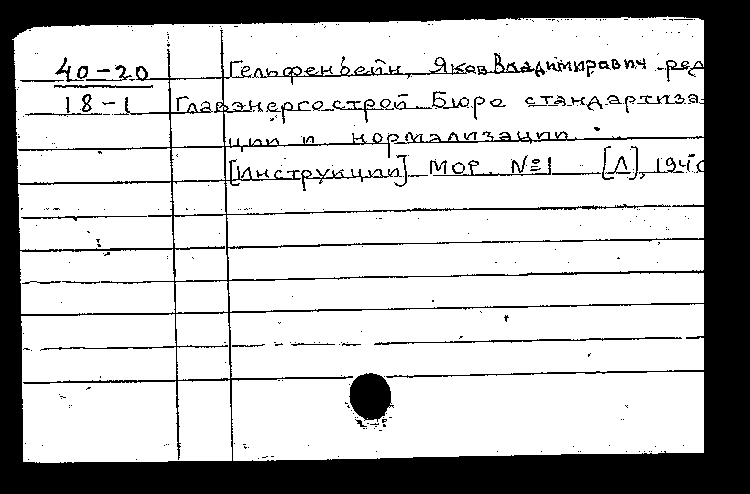 40-20 Гельфенбейн, Яков Владимирович ред
18-1 Главэнергострой. Бюро стандартиза-
ции и нормализации.
[Инструкции] МОР. №1 [Л], 1940